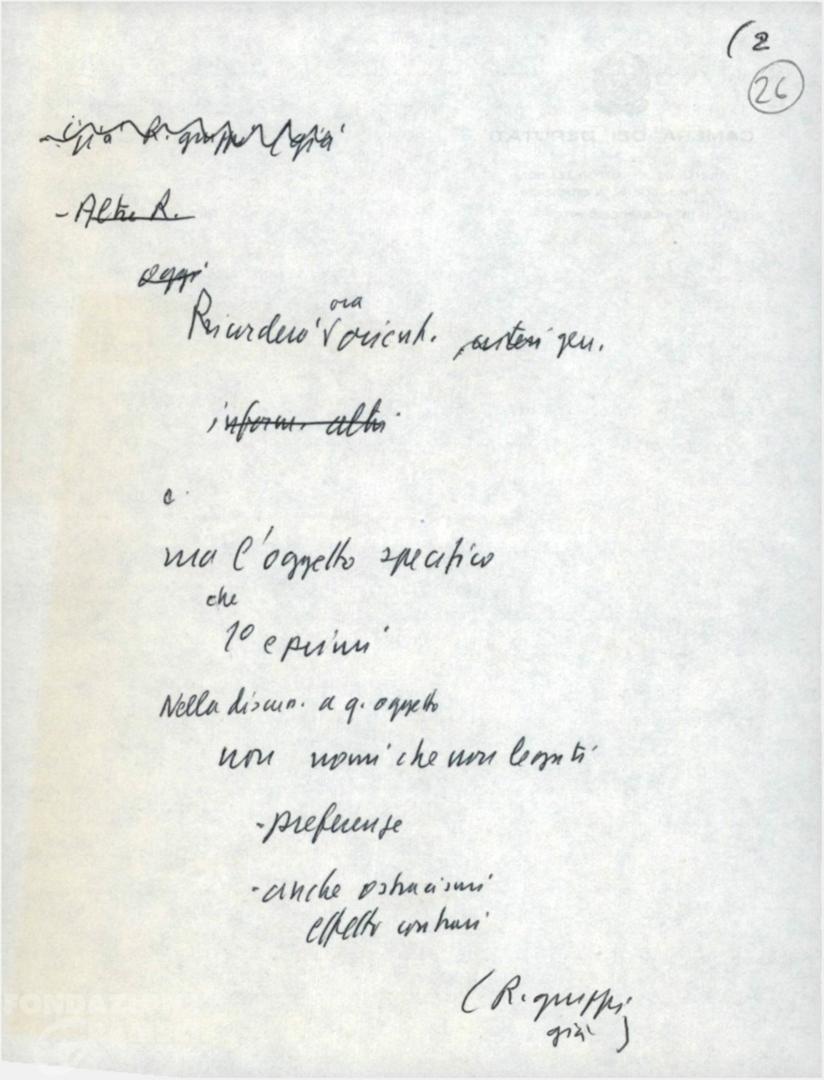 (2
26
già R. gruppi (già
- Altri R.
oggi
ora
Ricorderò orient. criteri gen.
inform. altri
e
ma l'oggetto specifico
che
1º e primi
Nella discun. a q. oggetto
non nomi che non legati
- preferenze
- anche ostracismi
effetto contrari
(R. gruppi
già)
CAMERA DEI DEPUTATI
FONDAZIONE